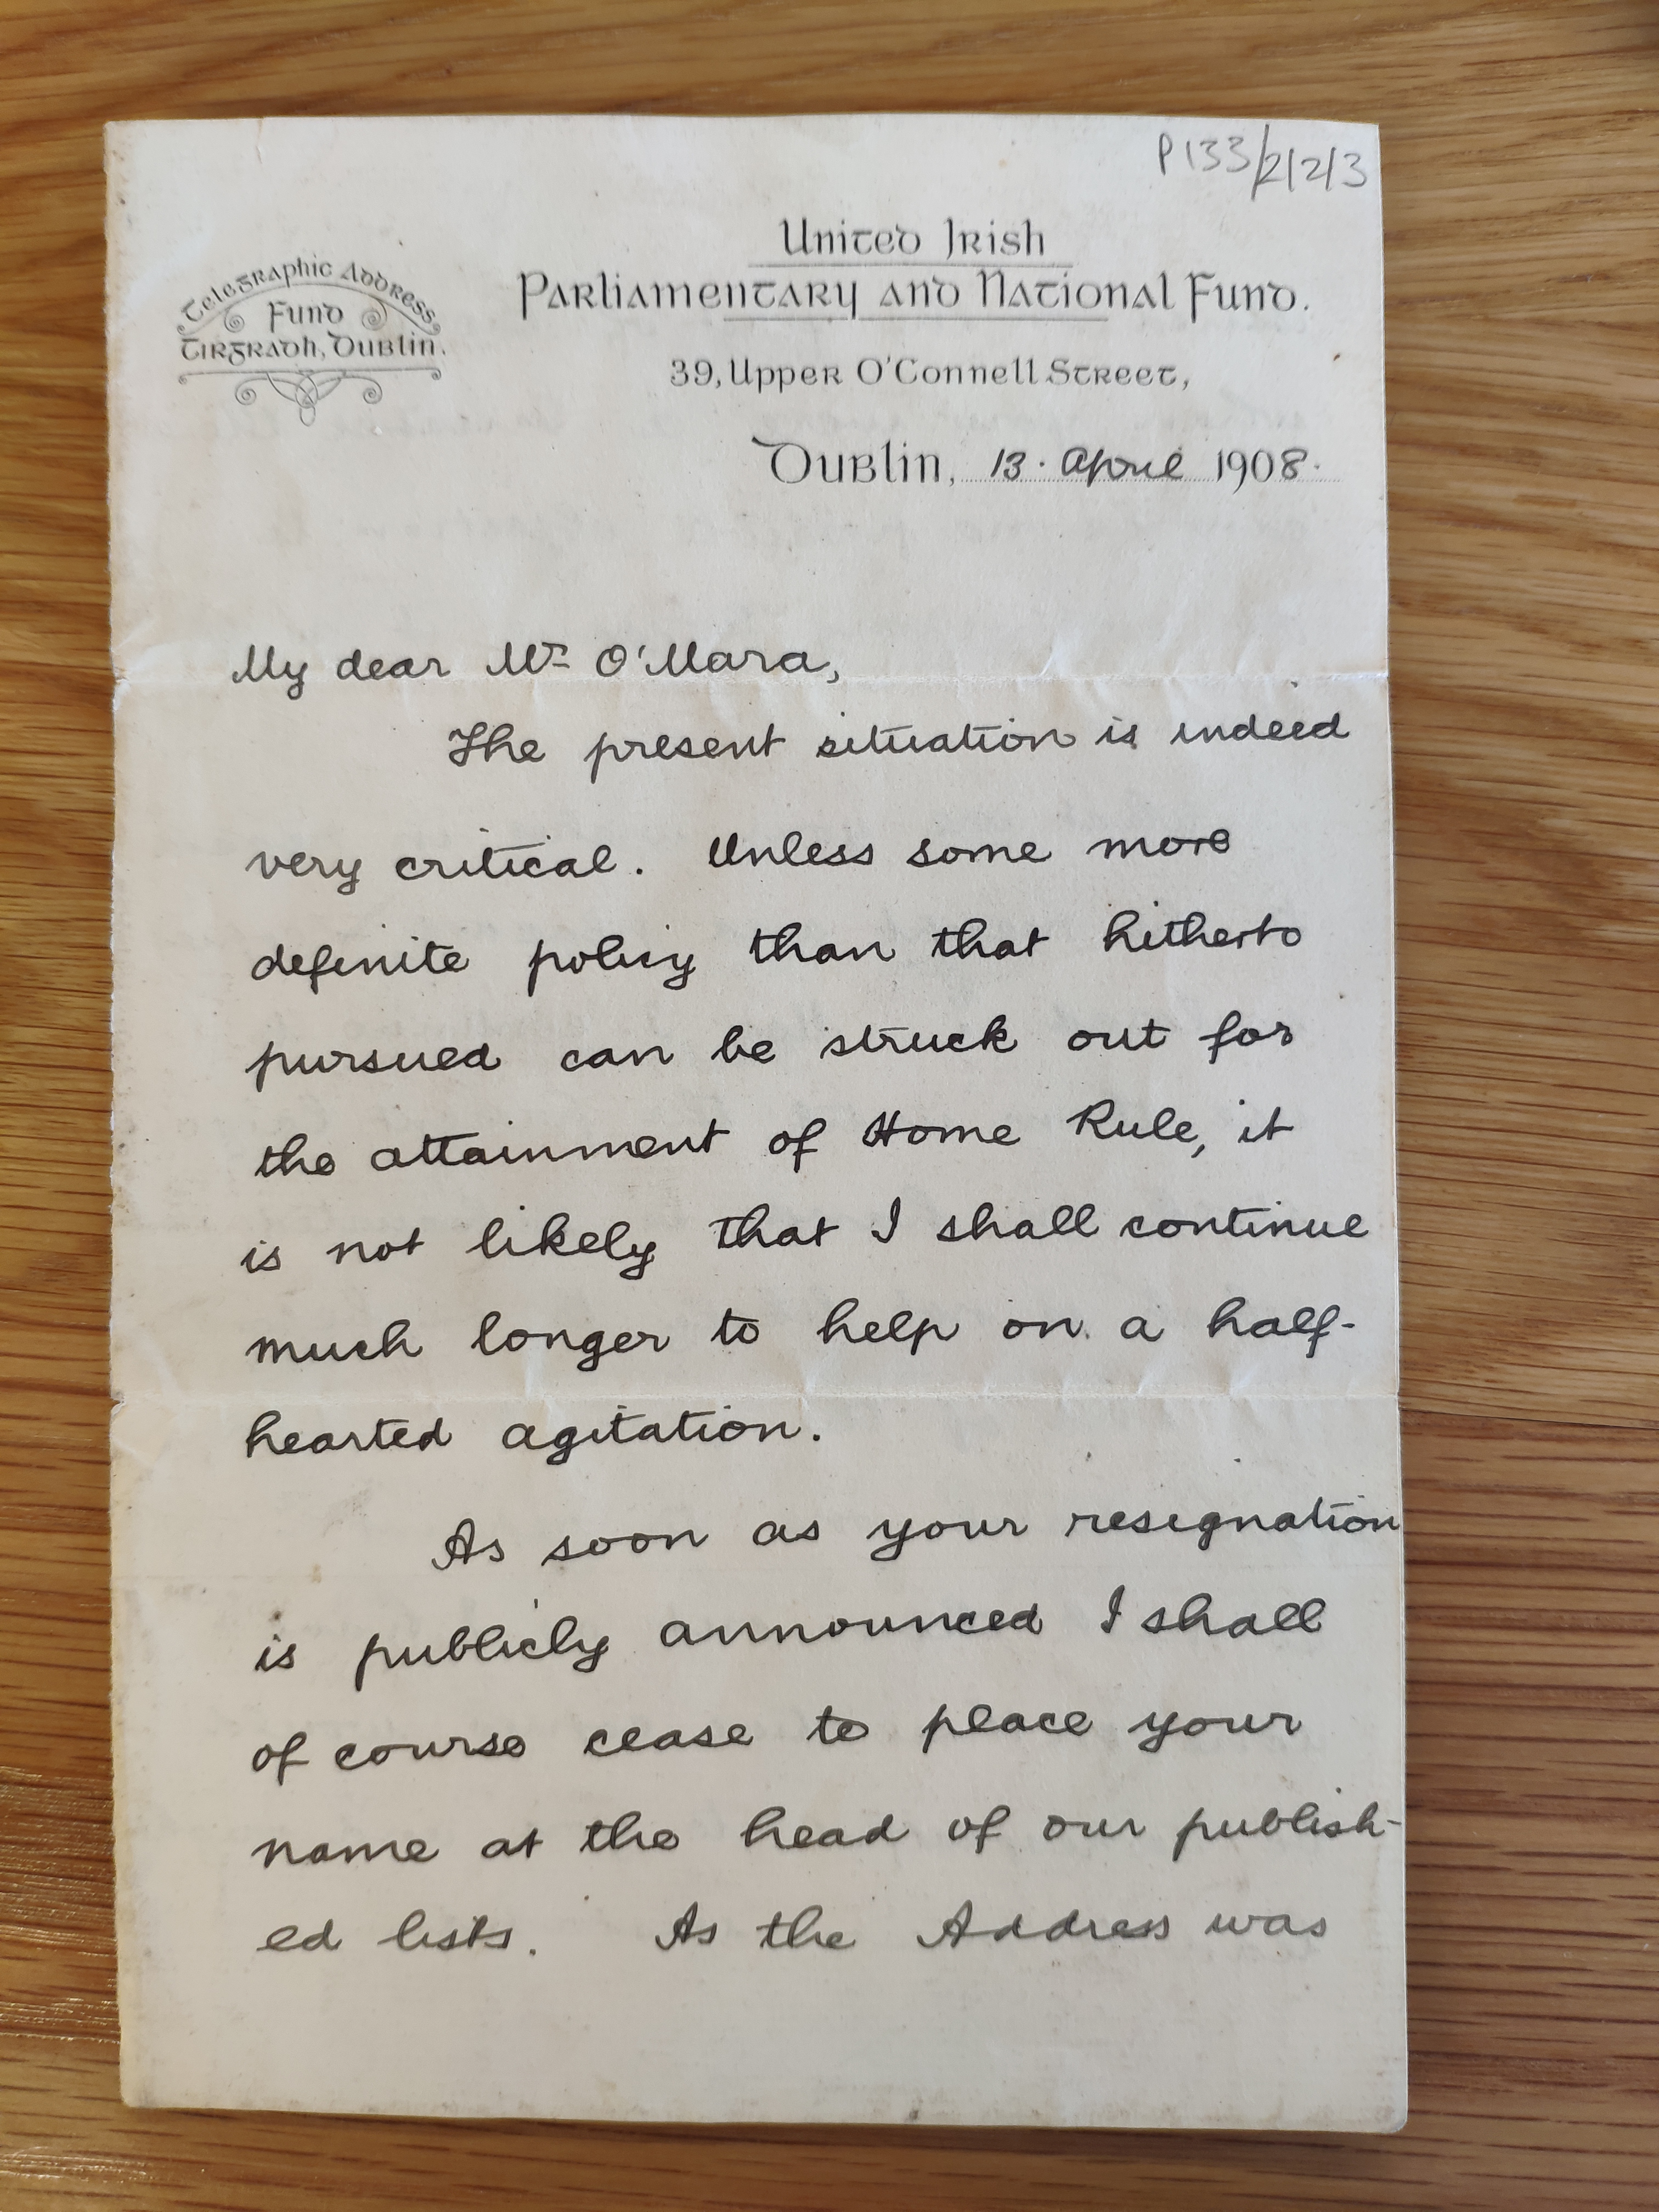 P133/2/2/3
United Irish
Parliamentary and National Fund.
Telegraphic Address
Fund
Tirgradh, Dublin.
39, Upper O'Connell Street,
Dublin, 13. April 1908.
My dear Mr O'Mara,
The present situation is indeed
very critical. Unless some more
definite policy than that hitherto
pursued can be struck out for
the attainment of Home Rule, it
is not likely that I shall continue
much longer to help on a half-
hearted agitation.
As soon as your resignation
is publicly announced I shall
of course cease to place your
name at the head of our publish-
ed lists. As the Address was